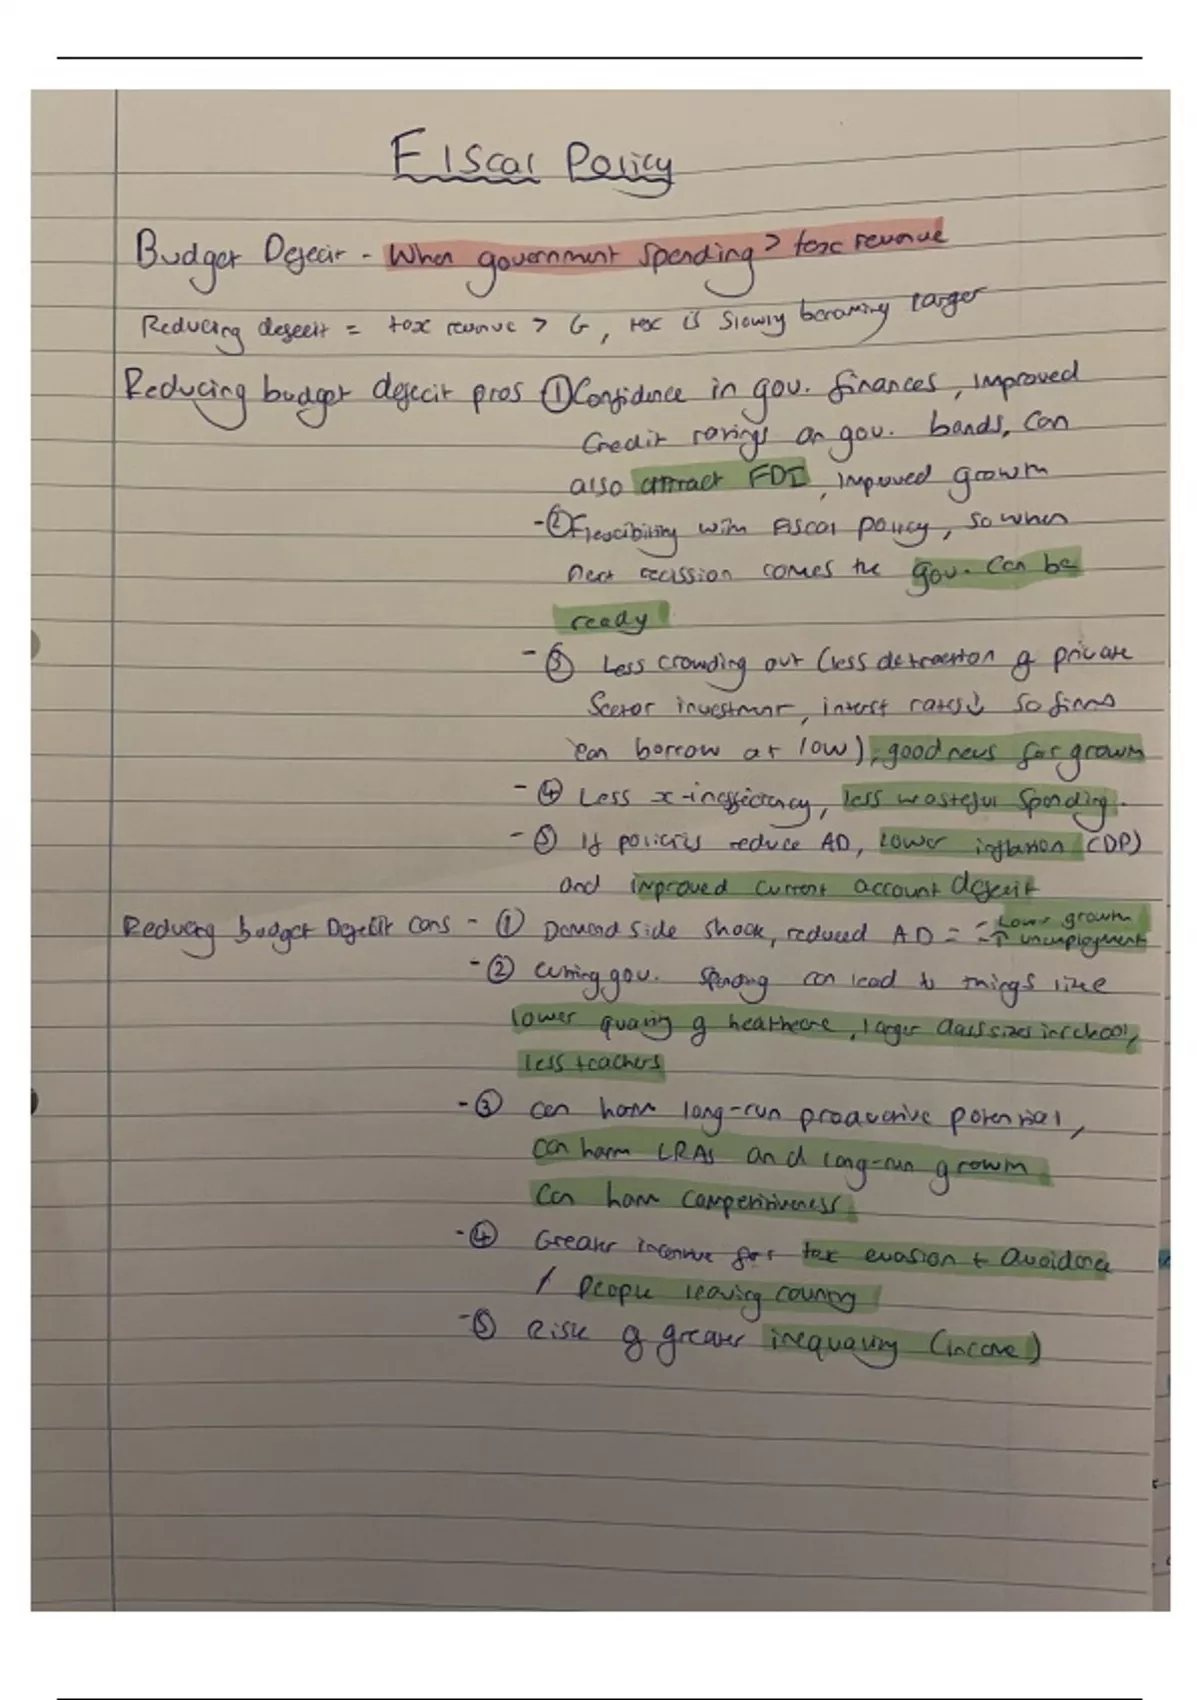 Fiscal Policy
Budget Deficit - When government spending > tax revenue
Reducing deficit = tax revenue > G, tax is slowly becoming larger
Reducing budget deficit pros ① Confidence in gov. finances, improved
credit ratings on gov. bonds, can
also attract FDI, improved growth
- ② Flexibility with fiscal policy, so when
next recission comes the gov. can be
ready
- ③ Less crowding out (less detraction of private
sector investment, interest rates ↓ so firms
can borrow at low), good news for growth
- ④ Less x-inefficiency, less wasteful spending.
- ⑤ If policies reduce AD, lower inflation (DP)
and improved current account deficit
Reducing budget Deficit cons - ① Demand side shock, reduced AD = - Lower growth
- ↑ unemployment
- ② Cutting gov. spending can lead to things like
lower quality of healthcare, larger class sizes in school,
less teachers
- ③ Can harm long-run productive potential,
can harm LRAS and long-run growth
can harm competitiveness
- ④ Greater incentive for tax evasion + avoidance
/ people leaving country
- ⑤ Risk of greater inequality (income)